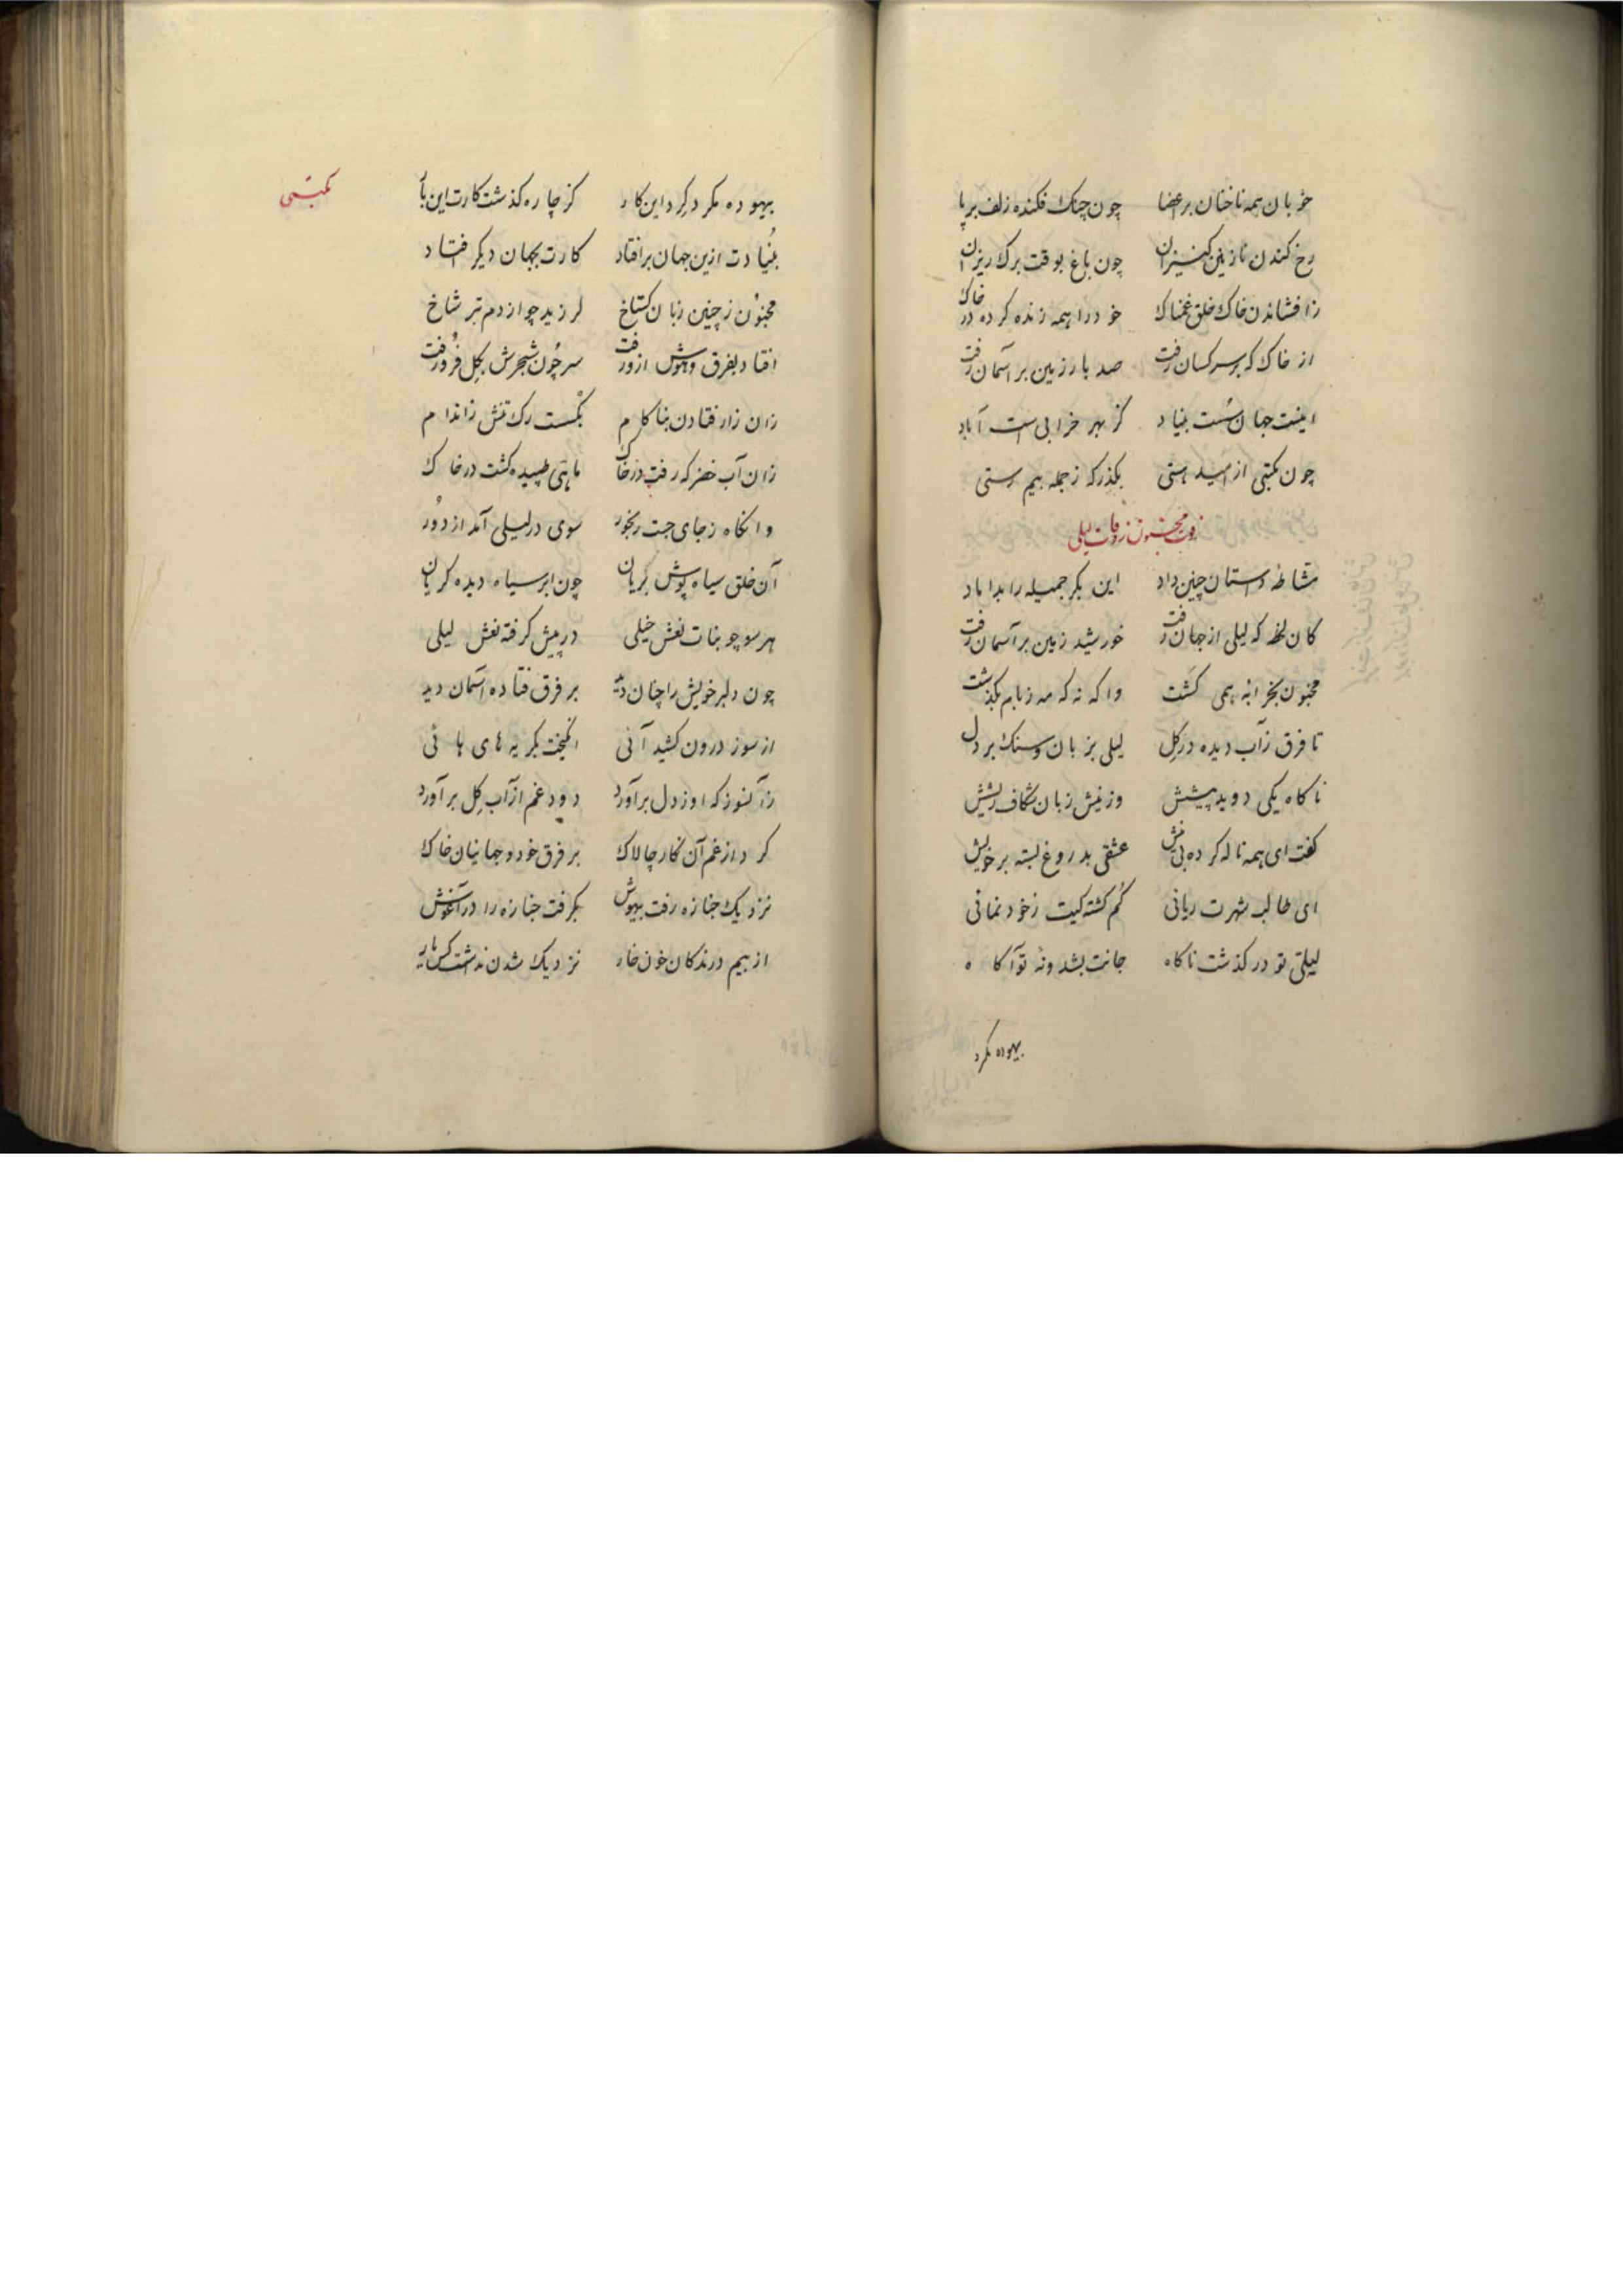 خوبان همه ناخنان برعضا چون چنک فکنده زلف برپا
رخ کندن نازنین کنیزان چون باغ بوقت برک ریزان
زافشاندن خاک خلق غمناک خود را همه زنده کرده در خاک
از خاک که بر سر کسان رفت صد بار زمین بر آسمان رفت
اینست جهان سست بنیاد کز بهر خرابی است آباد
چون مکتبی از امید هستی بکذر که ز جمله بیم رستی
مجنون وفات لیلی
مشاطه داستان چنین داد این بکر جمیله را بداماد
کان لحظه که لیلی از جهان رفت خورشید زمین بر آسمان رفت
مجنون بخرابه همی کشت واکه نه که مه ز بام بکذشت
تا فرق زآب دیده در کل لیلی بزبان و سنک بر دل
ناکاه یکی دوید پیشش وز نیش زبان شکاف ریشش
کفت ای همه ناله کرده بی نیش عشقی بدروغ بسته بر خویش
ای طالب شهرت زبانی کم کشته کیت ز خود نمانی
لیلی تو در کذشت ناکاه جانت بشد و نه تو آکاه
بیهوده مکرد
مکتبی
بیهوده مکرد کرد این کار کز چاره کذشت کارت این بار
بنیادت ازین جهان برافتاد کارت بجهان دیکر افتاد
مجنون ز چنین زبان کستاخ لرزید چو از دم تبر شاخ
افتاد بفرق و هوش ازو رفت سر چون شجرش بکل فرو رفت
زان زار فتادن بناکام بکسست رک تنش ز اندام
زان آب خضر که رفت در خاک ماهی طپیده کشت در خاک
وانکاه ز جای جست رنجور سوی در لیلی آمد از دور
آن خلق سیاه پوش کریان چون ابر سیاه دیده کریان
هر سو چو بنات نعش خیلی در پیش کرفته نعش لیلی
چون دلبر خویش را چنان دید بر فرق فتاده آسمان دید
از سوز درون کشید آنی انکیخت بکریه های هائی
زان سوز که او ز دل برآورد دود غم از آب کل برآورد
کرد از غم آن نکار چالاک بر فرق خود و جهانیان خاک
نزدیک جنازه رفت بیهوش بکرفت جنازه را در آغوش
از بیم درندکان خون خوار نزدیک شدن نداشت کس یار